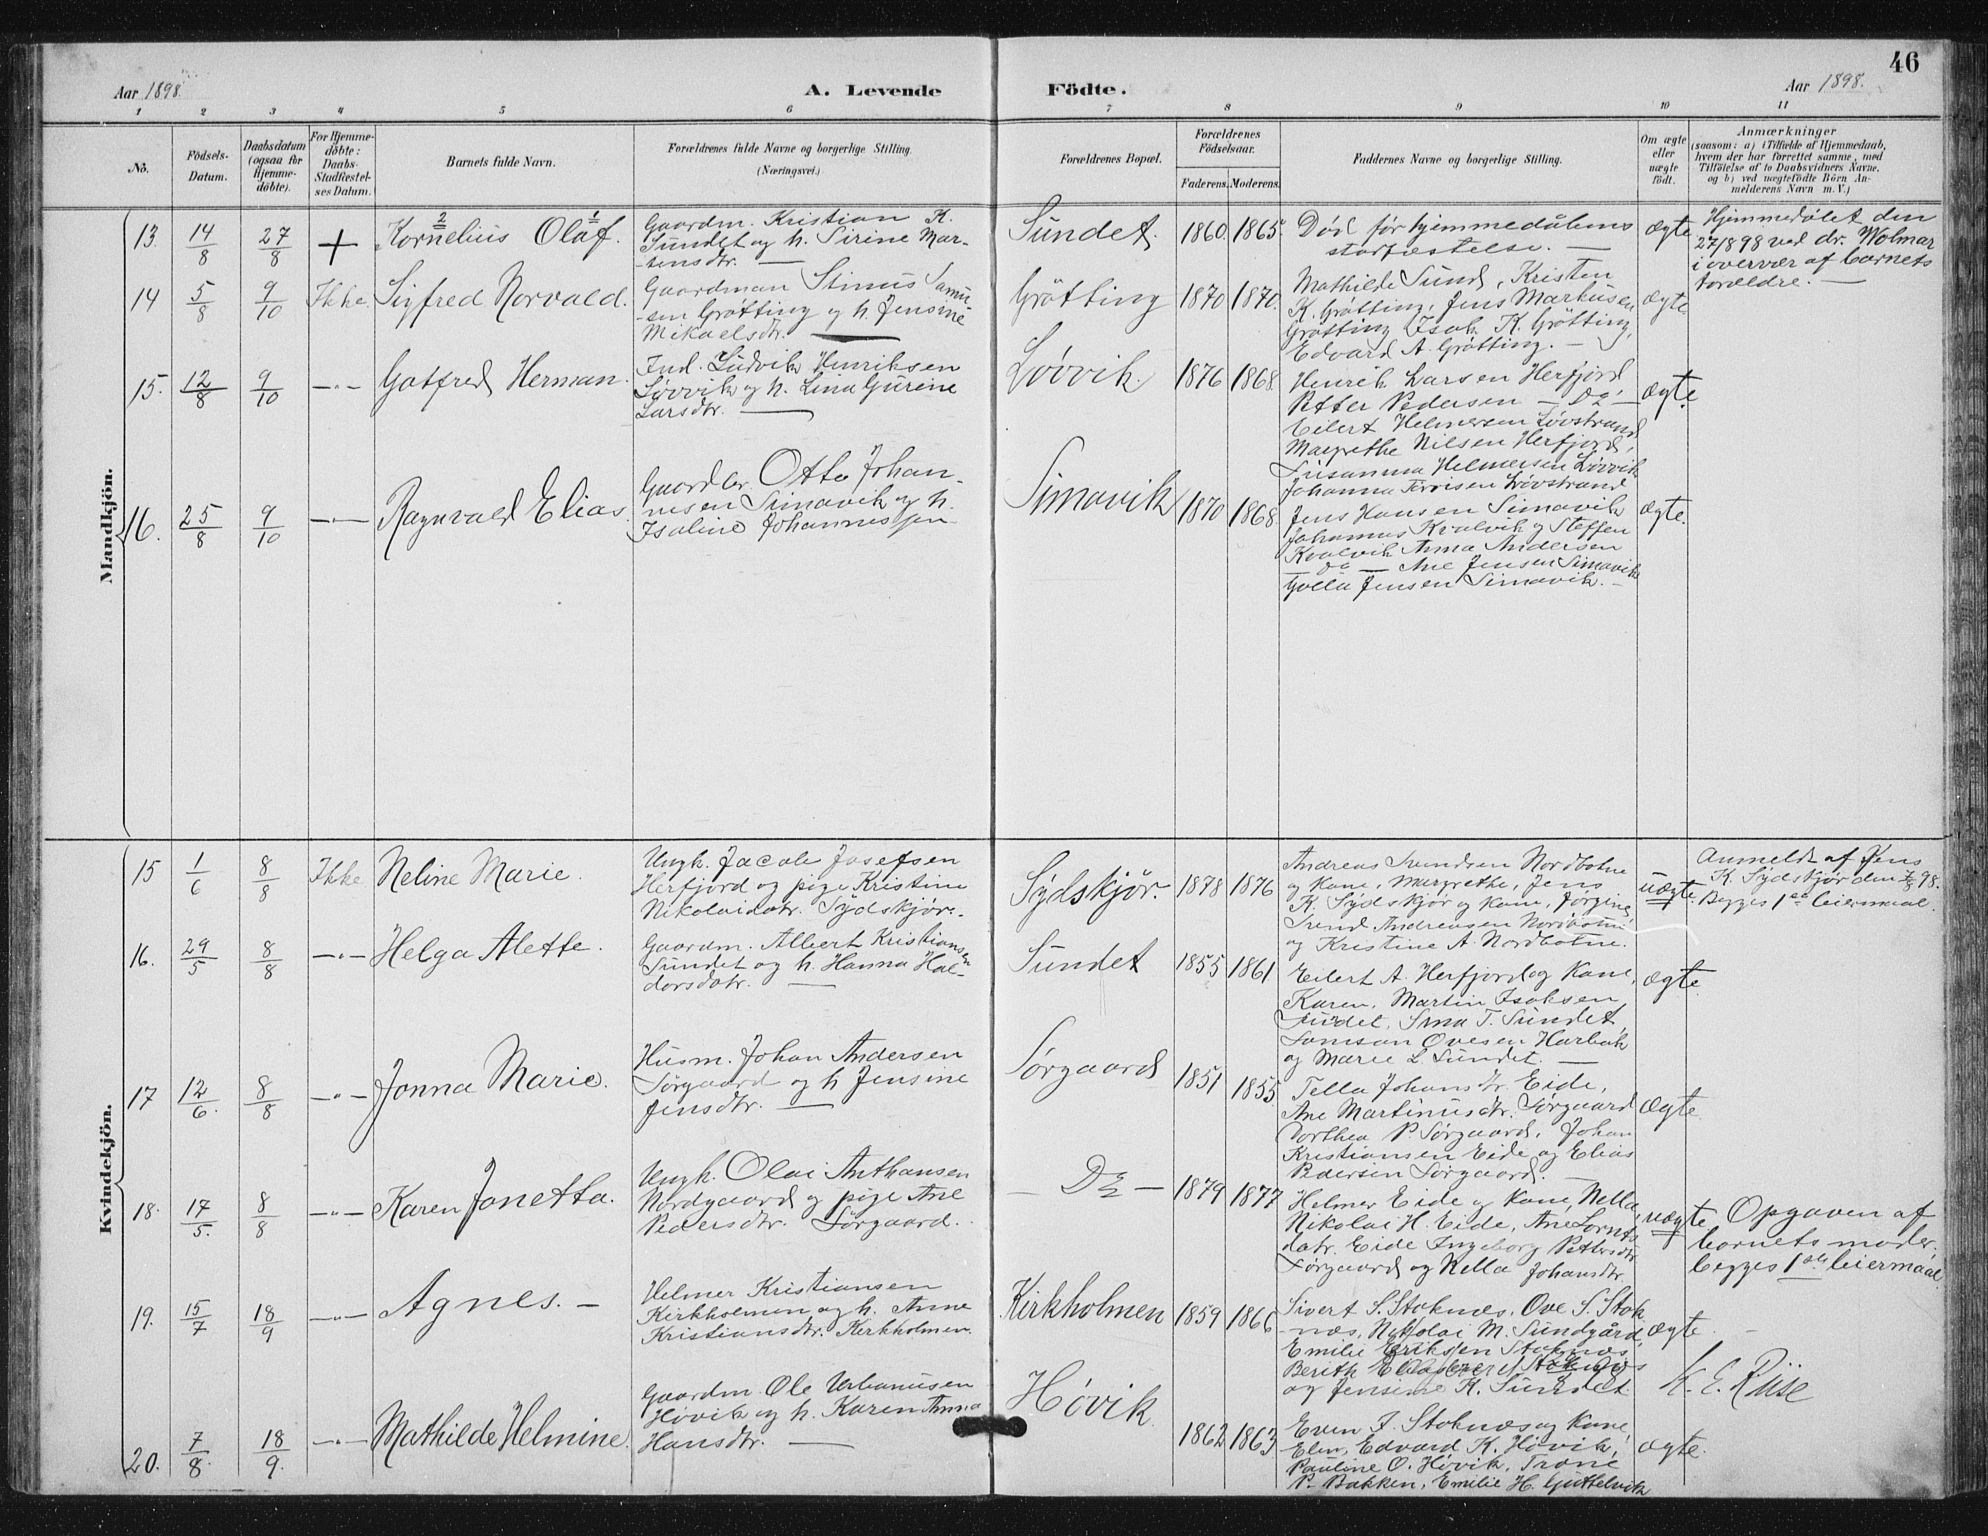 46
Aar 1898.
A. Levende
Födte.
Aar 1898.
1 2 3 4 5 6 7 8 9 10 11
No.
Födsels-
Datum.
Daabsdatum
(ogsaa for
Hjemme-
döbte).
For Hjemme-
döbte:
Daabs-
Stadfæstel-
ses Datum.
Barnets fulde Navn.
Forældrenes fulde Navne og borgerlige Stilling.
(Næringsvei.)
Forældrenes Bopæl.
Forældrenes
Födselsaar.
Faderens. Moderens.
Faddernes Navne og borgerlige Stilling.
Om ægte
eller
uægte
födt.
Anmærkninger
(saasom: a) i Tilfælde af Hjemmedaab,
hvem der har forrettet samme, med
Tilföielse af to Daabsvidners Navne,
og b) ved uægtefödte Börn An-
melderens Navn m. V.)
Mandkjön.
13. 14/8 27/8 + Kornelius Olaf.
2 1
Gaardm. Kristian K.
Sundet og h. Sirine Mar-
tensdtr. —
Sundet. 1860. 1865.
Död för hjemmedåbens
stadfæstelse. —
ægte
Hjemmedøbt den
27/8 98 ved dr. Wolmar
i overvær af barnets
forældre. —
14 5/8 9/10 Ikke Sigfred Norvald.
Gaardman Stinus Samu-
sen Grøtting og h. Jensine
Mikaelsdtr. —
Grøtting 1870 1870.
Mathilde Sund, Kristen
K. Grøtting, Jens Markusen
Grøtting Isak K. Grøtting,
Edvard A. Grøtting. —
ægte
15. 12/8 9/10 —"— Gotfred Herman.
Ind. Ludvik Henriksen
Løvvik og h. Lina Gurine
Larsdtr. —
Løvvik. 1876 1868.
Henrik Larsen Herfjord
Petter Pedersen — Do —
Eilert Helmersen Løvstrand
Margrethe Nilsen Herfjord,
Susanna Helmersen Løvvik
Johanna Løvstrand
ægte.
16. 25/8 9/10 —"— Ragnvald Elias.
Gaardbr. Otto Johan-
nesen Simavik og h.
Isaline Johannessen
Simavik 1870 1868.
Jens Hansen Simavik
Johannes Kvalvik og Steffen
Kvalvik Anna Andersen
— do — Ane Jensen Simavik
Jensen Simavik. —
ægte.
Kvindekjön.
15 1/6 8/8 Ikke Neline Marie.
Ungk. Jacob Josefsen
Herfjord og pige Kristine
Nikolaidatr. Sydskjør.
Sydskjør. 1878 1876
Andreas Svendsen Nordbotne
og Kone, Margrethe, Jens
K. Sydskjør og kone, Jørgine,
Svend Andreasen Nordbotne
og Kristine A. Nordbotne.
uægte.
Anmeldt af Jens
K. Sydskjør den 7/8 98.
Begges 1ste leiermaal.
16. 29/5 8/8 —"— Helga Alette.
Gaardm. Albert Kristiansen
Sundet og h. Hanna Hal-
dorsdatr. —
Sundet 1855 1861
Eilert A. Herfjord og Kone,
Karen, Martin Isaksen
Sundet, T. Sundet,
Samson Ovesen Harbak
og Marie L Sundet. —
ægte.
17 12/6. 8/8 —"— Jonna Marie.
Husm. Johan Andersen
Sørgaard og h Jensine
Jensdtr. —
Sørgaard 1851 1855
Tella Johansdtr Eide,
Ane Martinusdtr. Sørgaard
Dorthea P. Sørgaard, Johan
Kristiansen Eide og Elias
Pedersen Sørgaard. —
ægte
18. 17/5. 8/8 —"— Karen Jonetta.
Ungk. Olai Anthonsen
Nordgaard og pige Ane
Pedersdtr. Sørgaard.
— Do — 1879 1877
Helmer Eide og Kone, Nella,
Nikolai H. Eide, Ane Lornts
datr. Eide Ingeborg Pettersdtr
Sørgaard og Kella Johansdtr.
uægte
Opgaven af
barnets moder.
begges 1ste leiermaal
19. 15/7 18/9 —"— Agnes. —
Helmer Kristiansen
Kirkholmen og h. Anne
Kristiansdtr. Kirkholmen.
Kirkholmen 1859 1866
Sivert S. Stoknæs, Ove S. Stok
-næs, Nikolai M. Sundgård,
Emilie Eriksen Stoknæs,
Berith Stoknæs
og Jensine K. Sundet.
ægte.
K. E. Riise
20. 7/8. 18/9. —"— Mathilde Helmine.
Gaardm. Ole Urbanusen
Høvik og h. Karen Anna
Hansdtr. —
Høvik. 1862 1863
Even J. Stoknæs og Kone,
Elen, Edvard K. Høvik,
Pauline O. Høvik, Trone
P. Bakken, Emilie H. Guttelvik
ægte.